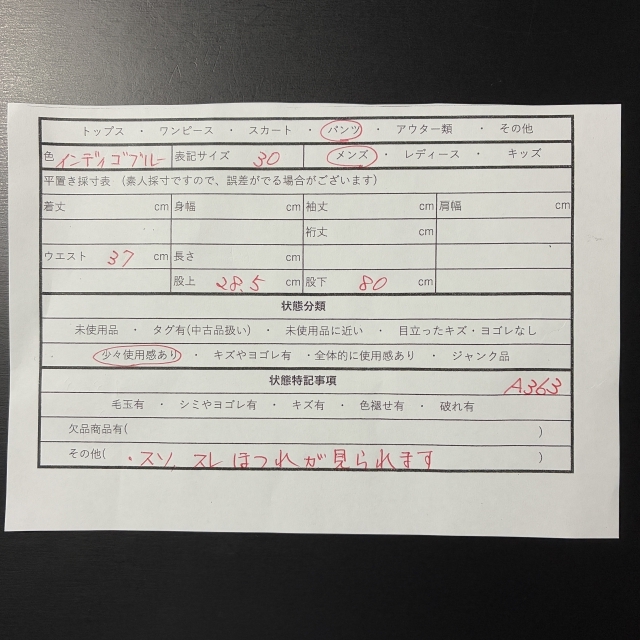 トップス ・ ワンピース ・ スカート ・ パンツ ・ アウター類 ・ その他
色 インディゴブルー 表記サイズ 30 メンズ ・ レディース ・ キッズ
平置き採寸表 (素人採寸ですので、誤差がでる場合がございます)
着丈 cm 身幅 cm 袖丈 cm 肩幅 cm
裄丈 cm
ウエスト 37 cm 長さ cm
股上 28.5 cm 股下 80 cm
状態分類
未使用品 ・ タグ有(中古品扱い) ・ 未使用品に近い ・ 目立ったキズ・ヨゴレなし
少々使用感あり ・ キズやヨゴレ有 ・全体的に使用感あり ・ ジャンク品
状態特記事項
A363
毛玉有 ・ シミやヨゴレ有 ・ キズ有 ・ 色褪せ有 ・ 破れ有
欠品商品有( )
その他( ・スソ、スレ ほつれが見られます )